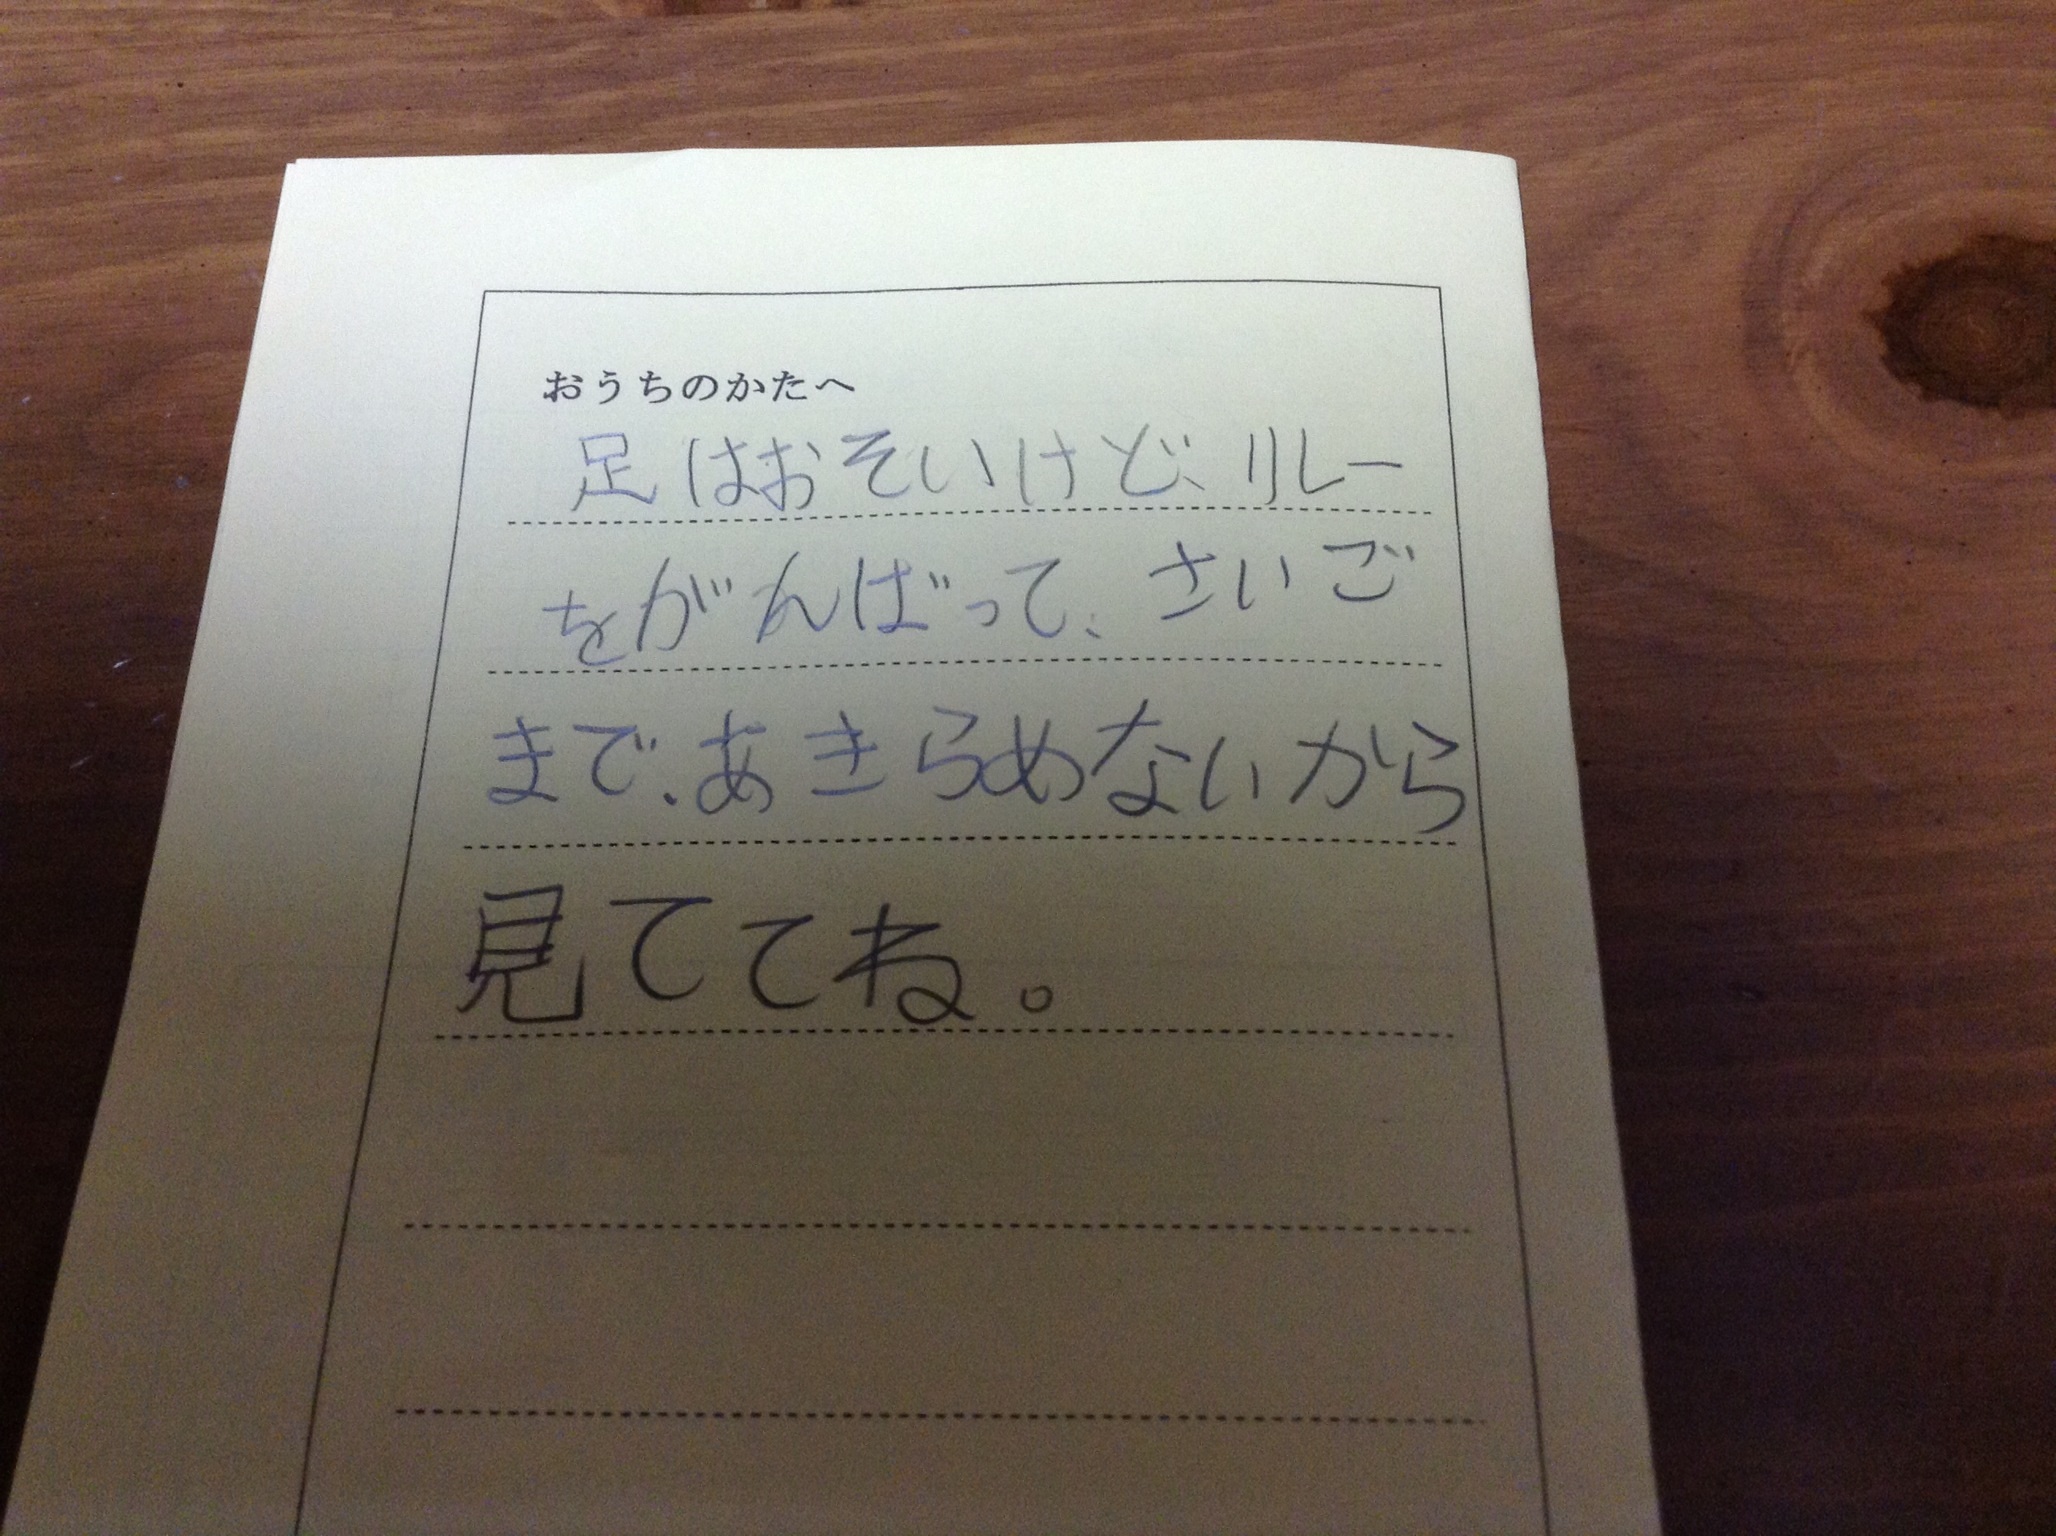 おうちのかたへ
足はおそいけど、リレー
をがんばって、さいご
まで、あきらめないから
見ててね。